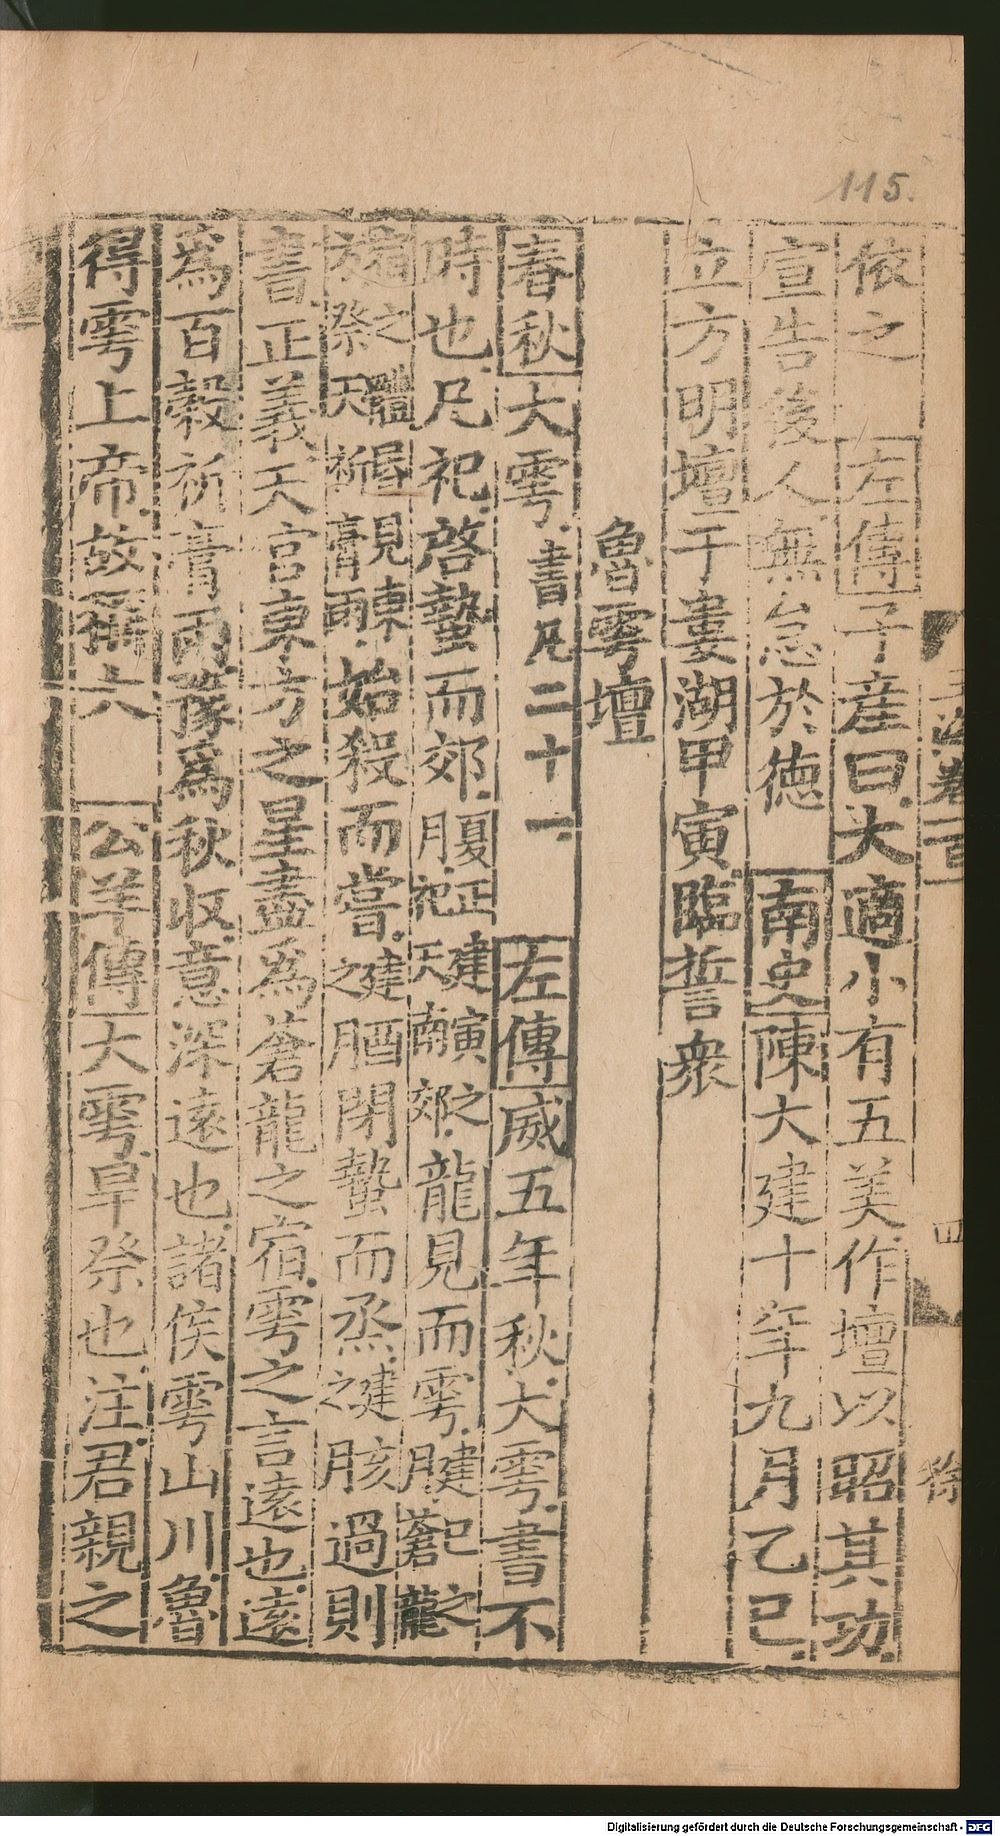 115.
依之 左傳子產曰大適小有五美作壇以昭其功
宣告後人無怠於德 南史陳大建十年九月乙巳
立方明壇于婁湖甲寅臨誓衆
魯雩壇
春秋大雩書凡二十一 左傳威五年秋大雩書不
時也凡祀啓蟄而郊夏正建寅之月祀天南郊龍見而雩建巳之月蒼龍
宿之體昏見東方祭天祈膏雨始殺而嘗建酉之月閉蟄而烝建亥之月過則
書正義天官東方之星盡爲蒼龍之宿雩之言遠也遠
爲百穀祈膏雨豫爲秋收意深遠也諸侯雩山川魯
得雩上帝故稱大 公羊傳大雩旱祭也注君親之
Digitalisierung gefördert durch die Deutsche Forschungsgemeinschaft - DFG